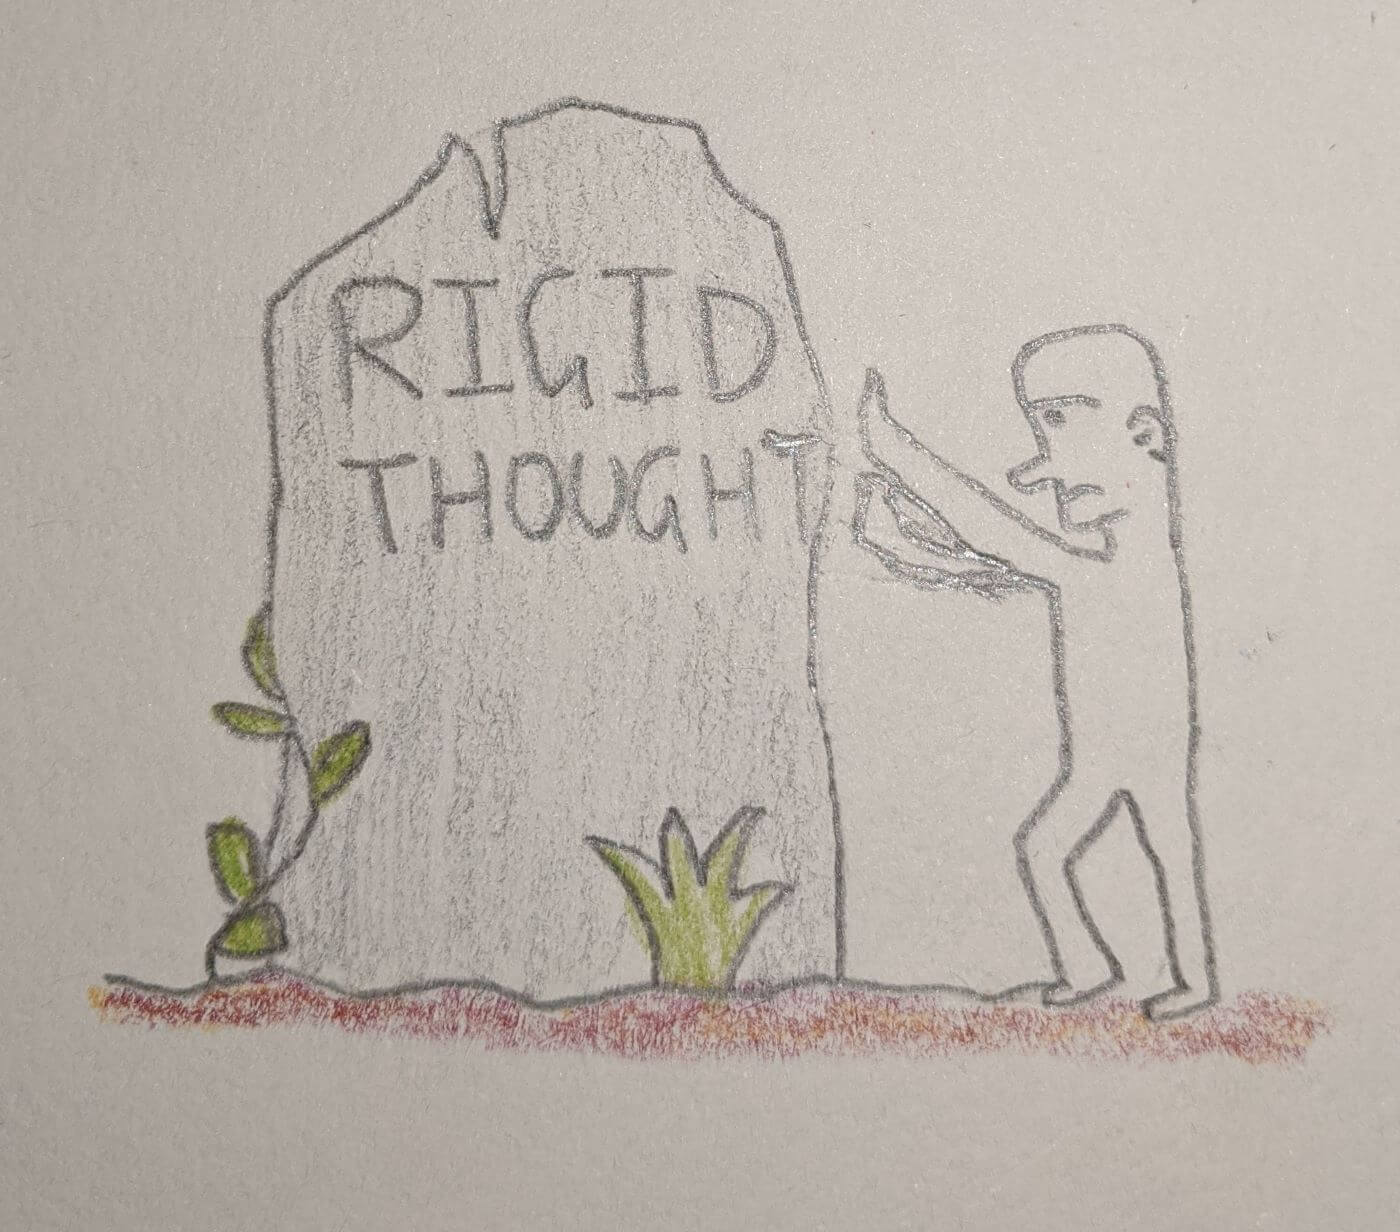 RIGID
THOUGHT